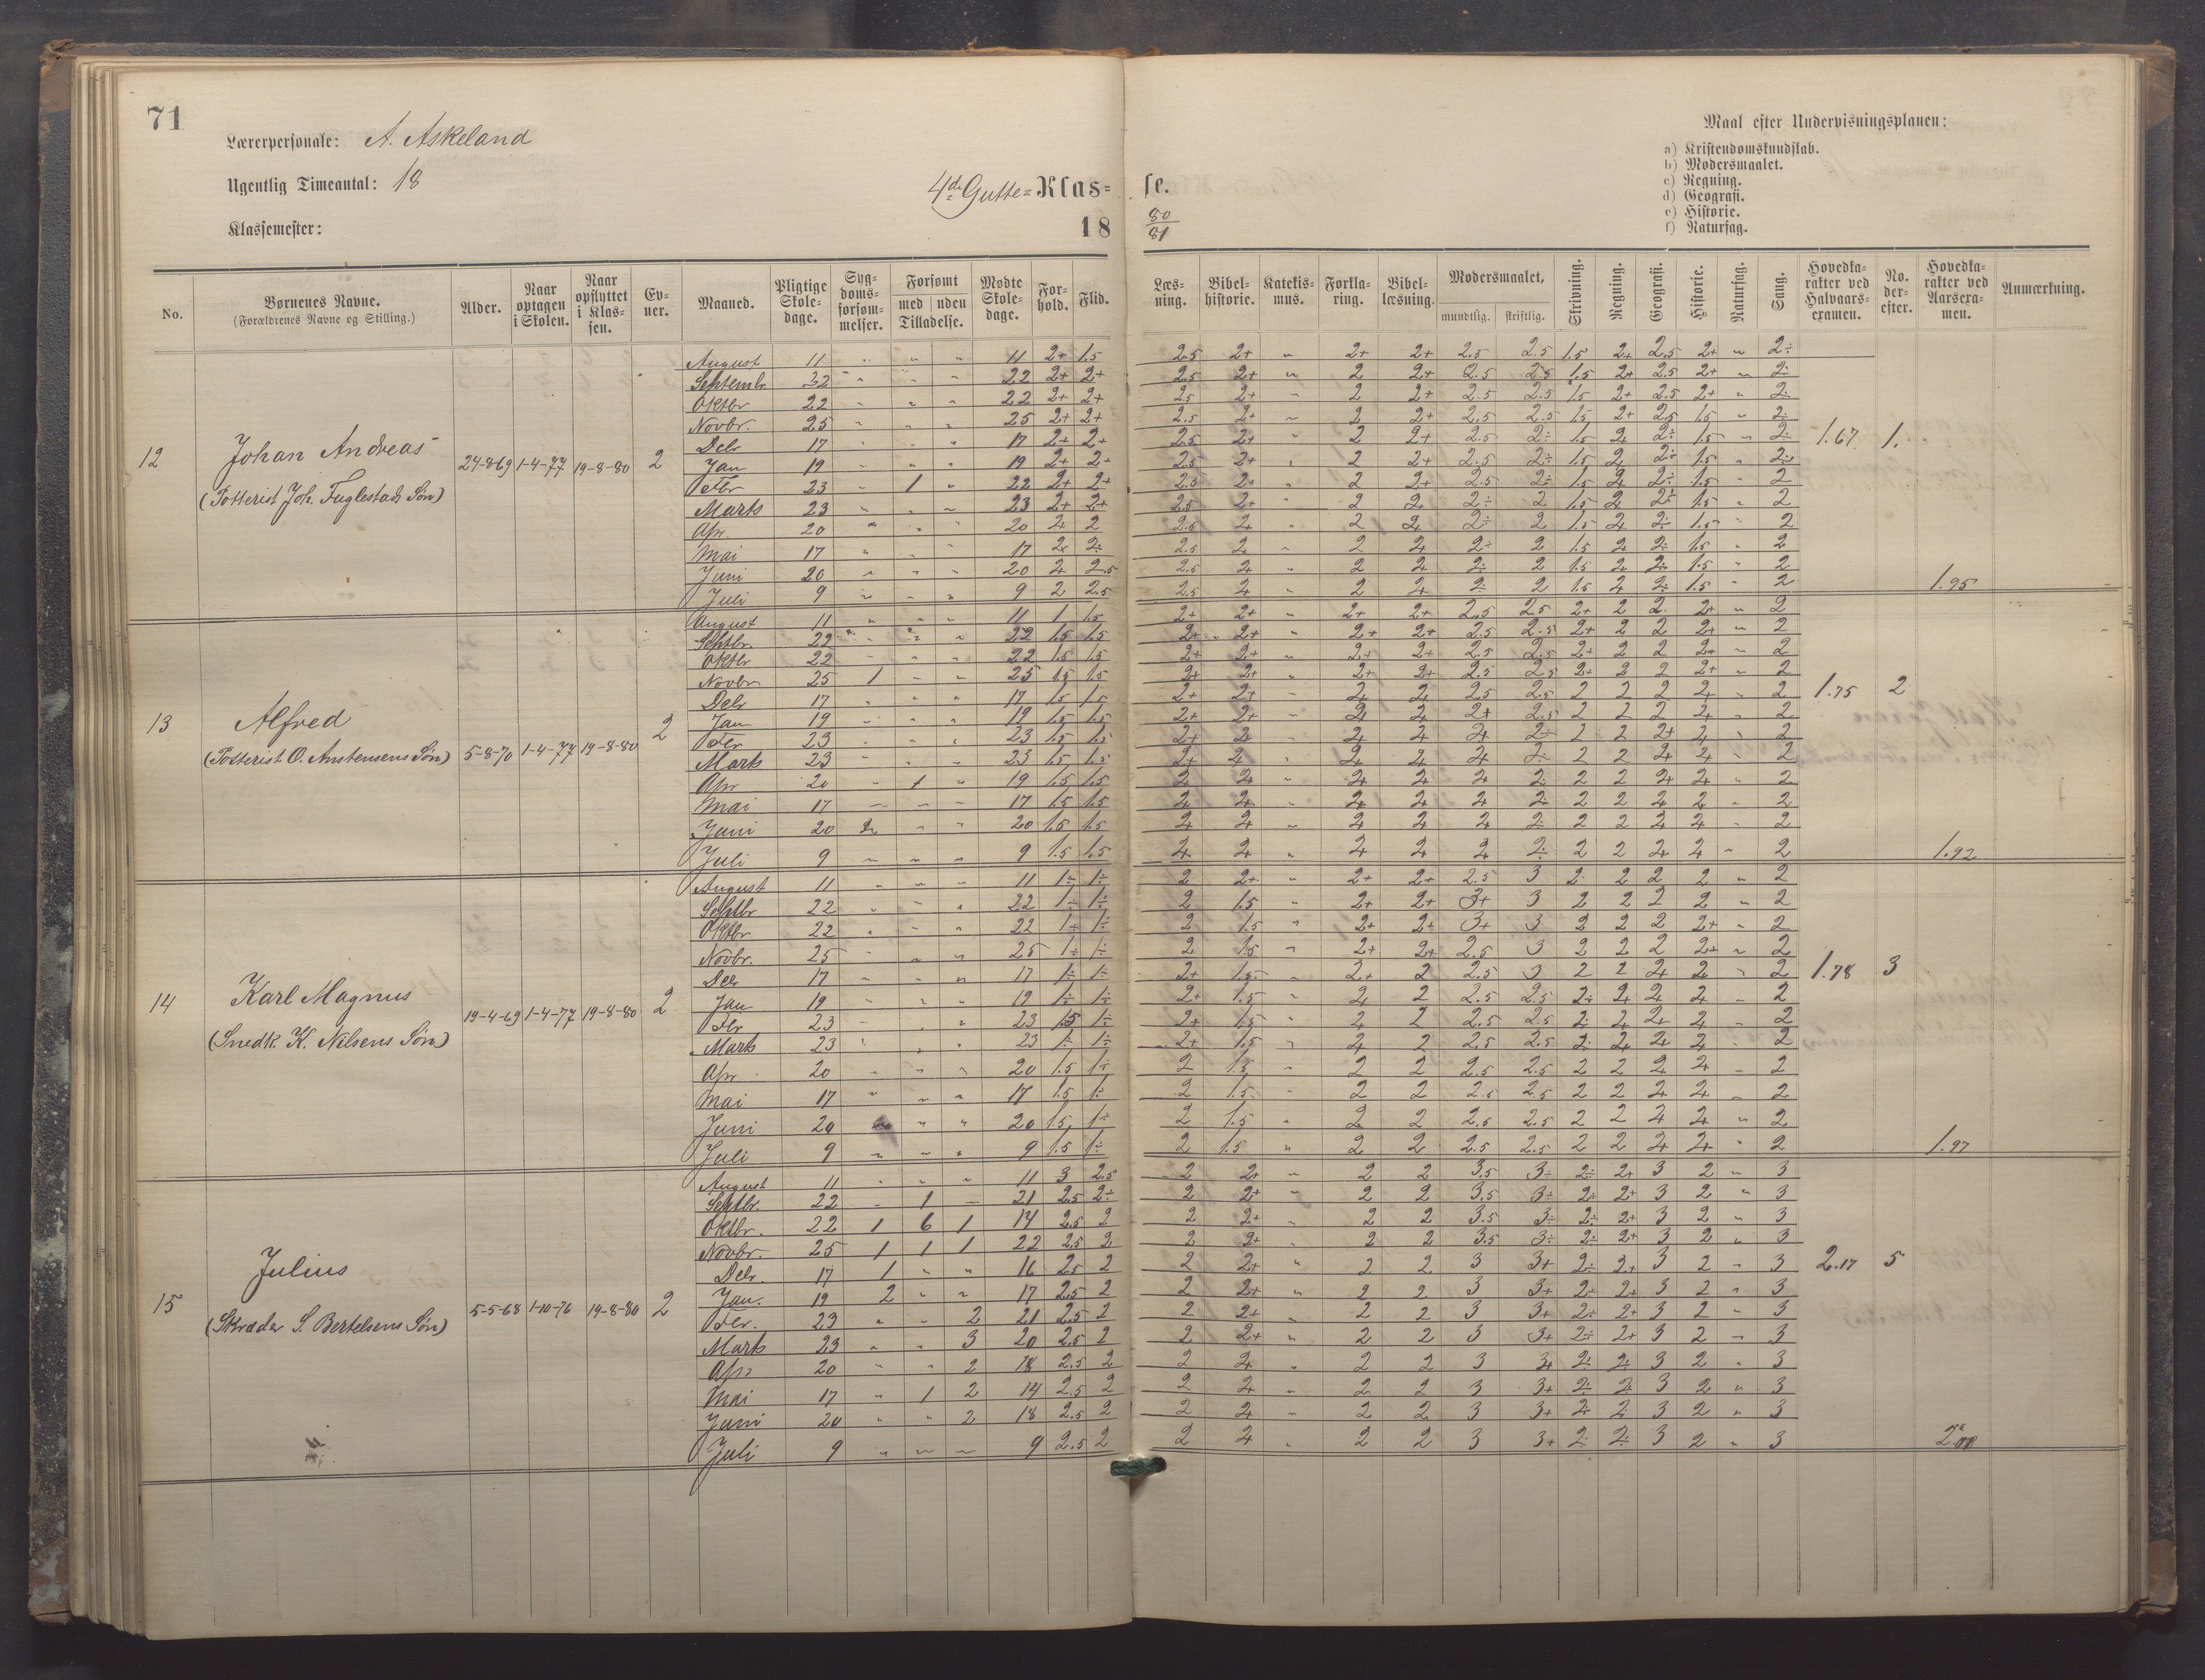 71
Lærerpersonale: A. Askeland
Ugentlig Timeantal: 18
Klassemester:
4de Gutte=Klas= se.
18 80/81
Maal efter Undervisningsplanen:
a) Kristendomskundskab.
b) Modersmaalet.
c) Regning.
d) Geografi.
e) Historie.
f) Naturfag.
No. | Børnenes Navne. (Forældrenes Navne og Stilling.) | Alder. | Naar optagen i Skolen. | Naar opflyttet i Klassen. | Evner. | Maaned. | Pligtige Skoledage. | Sygdomsforsømmelser. | Forsømt med uden Tilladelse. | Mødte Skoledage. | Forhold. | Flid. | Læsning. | Bibelhistorie. | Katekismus. | Forklaring. | Bibellæsning. | Modersmaalet, mundtlig. skriftlig. | Skrivning. | Regning. | Geografi. | Historie. | Naturfag. | Sang. | Hovedkarakter ved Halvaarsexamen. | No. derefter. | Hovedkarakter ved Aarsexamen. | Anmærkning.
12 Johan Andreas
(Fosterist Joh. Fuglestads Søn) 24-8-69 1-4-77 19-8-80 2 1.67 1. 1.95
August 11 " " " 11 2+ 1.5 2.5 2+ " 2+ 2+ 2.5 2.5 1.5 2+ 2.5 2+ " 2÷
Septembr 22 " " " 22 2+ 2+ 2.5 2+ " 2 2+ 2.5 2.5 1.5 2+ 2.5 2+ " 2÷
Oktbr 22 " " " 22 2+ 2+ 2.5 2+ " 2 2+ 2.5 2.5 1.5 2+ 2.5 2+ " 2÷
Novbr. 25 " " " 25 2+ 2+ 2.5 2+ " 2 2+ 2.5 2.5 1.5 2+ 2.5 1.5 " 2÷
Debr 17 " " " 17 2+ 2+ 2.5 2+ " 2 2+ 2.5 2÷ 1.5 2+ 2÷ 1.5 " 2÷
Jan 19 " " " 19 2+ 2+ 2.5 2+ " 2 2+ 2.5 2÷ 1.5 2+ 2÷ 1.5 " 2÷
Febr 23 " 1 " 22 2+ 2+ 2.5 2+ " 2 2+ 2.5 2÷ 1.5 2+ 2÷ 1.5 " 2
Marts 23 " " " 23 2+ 2+ 2.5 2+ " 2 2+ 2÷ 2 1.5 2+ 2÷ 1.5 " 2
Apr. 20 " " " 20 2+ 2 2.5 2+ " 2 2+ 2÷ 2 1.5 2+ 2÷ 1.5 " 2
Mai 17 " " " 17 2+ 2÷ 2.5 2+ " 2 2+ 2÷ 2 1.5 2+ 2÷ 1.5 " 2
Juni 20 " " " 20 2+ 2.5 2.5 2+ " 2 2+ 2÷ 2 1.5 2+ 2÷ 1.5 " 2
Juli 9 " " " 9 2 2.5 2.5 2+ " 2 2+ 2÷ 2 1.5 2+ 2÷ 1.5 " 2
13 Alfred
(Fosterist O. Anstensens Søn) 5-8-70 1-4-77 19-8-80 2 1.75 2 1.92
August 11 " " " 11 1 1.5 2+ 2+ " 2+ 2+ 2.5 2.5 2+ 2 2 2+ " 2
Septbr. 22 " " " 22 1.5 1.5 2+ 2+ " 2+ 2+ 2.5 2.5 2+ 2 2 2+ " 2
Oktbr 22 " " " 22 1.5 1.5 2+ 2+ " 2+ 2+ 2.5 2.5 2+ 2 2 2+ " 2
Novbr 25 1 " " 25 1.5 1.5 2+ 2+ " 2+ 2+ 2.5 2.5 2+ 2 2 2+ " 2
Debr 17 " " " 17 1.5 1.5 2+ 2+ " 2+ 2+ 2.5 2.5 2 2 2 2+ " 2
Jan 19 " " " 19 1.5 1.5 2+ 2+ " 2+ 2+ 2+ 2.5 2 2 2 2+ " 2
Febr 23 " " " 23 1.5 1.5 2+ 2+ " 2+ 2+ 2+ 2÷ 2 2 2+ 2+ " 2
Marts 23 " " " 23 1.5 1.5 2+ 2+ " 2+ 2+ 2+ 2÷ 2 2 2+ 2+ " 2
Apr 20 " 1 " 19 1.5 1.5 2+ 2+ " 2+ 2+ 2+ 2÷ 2 2 2+ 2+ " 2
Mai 17 " " " 17 1.5 1.5 2+ 2+ " 2+ 2+ 2+ 2÷ 2 2 2+ 2+ " 2
Juni 20 " " " 20 1.5 1.5 2+ 2+ " 2+ 2+ 2+ 2÷ 2 2 2+ 2+ " 2
Juli 9 " " " 9 1.5 1.5 2+ 2+ " 2+ 2+ 2+ 2÷ 2 2 2+ 2+ " 2
14 Karl Magnus
(Snedk. K. Nilsens Søn) 19-4-69 1-4-77 19-8-80 2 1.78 3 1.97
August 11 " " " 11 1÷ 1÷ 2 2+ " 2+ 2+ 2.5 3 2÷ 2 2 2 " 2
Septbr 22 " " " 22 1÷ 1÷ 2 1.5 " 2+ 2+ 3+ 3 2 2 2 2 " 2
Oktbr 22 " " " 22 1÷ 1÷ 2 1.5 " 2+ 2+ 3+ 3 2 2 2 2+ " 2
Novbr. 25 " " " 25 1÷ 1÷ 2 1.5 " 2+ 2+ 2.5 3 2 2 2 2+ " 2
Debr 17 " " " 17 1÷ 1÷ 2+ 1.5 " 2+ 2 2.5 3 2 2 2+ 2+ " 2
Jan 19 " " " 19 1÷ 1÷ 2+ 1.5 " 2+ 2 2.5 2.5 2÷ 2+ 2+ 2+ " 2
Febr 23 " " " 23 1.5 1÷ 2+ 1.5 " 2+ 2 2.5 2.5 2÷ 2+ 2+ 2+ " 2
Marts 23 " " " 23 1÷ 1÷ 2+ 1.5 " 2+ 2 2.5 2.5 2÷ 2+ 2+ 2+ " 2
Apr 20 " " " 20 1.5 1÷ 2 1.5 " 2 2 2.5 2.5 2 2 2+ 2+ " 2
Mai 17 " " " 17 1.5 1÷ 2 1.5 " 2 2 2.5 2.5 2 2 2+ 2+ " 2
Juni 20 " " " 20 1.5 1÷ 2 1.5 " 2 2 2.5 2.5 2 2 2+ 2+ " 2
Juli 9 " " " 9 1.5 1÷ 2 1.5 " 2 2 2.5 2.5 2 2 2+ 2+ " 2
15 Julius
(Skræder S. Bertelsens Søn) 5-5-68 1-10-76 19-8-80 2 2.17 5
August 11 " " " 11 3 2.5 2 2+ " 2 2 3.5 3÷ 2÷ 2+ 3 2 " 3
Septbr. 22 " 1 " 21 2.5 2÷ 2 2+ " 2 2 3.5 3÷ 2÷ 2+ 3 2 " 3
Oktbr. 22 1 6 1 14 2.5 2 2 2+ " 2 2 3.5 3÷ 2÷ 2+ 3 2 " 3
Novbr. 25 1 1 1 22 2.5 2 2 2+ " 2 2 3.5 3÷ 2÷ 2+ 3 2 " 3
Debr. 17 1 " " 16 2.5 2 2 2+ " 2 2 3 3+ 2÷ 2+ 3 2 " 3
Jan. 19 2 " " 17 2.5 2 2 2+ " 2 2 3 3+ 2÷ 2+ 3 2 " 3
Febr. 23 " " 2 21 2.5 2 2 2+ " 2 2 3 3+ 2÷ 2+ 3 2 " 3
Marts 23 " " 3 20 2.5 2 2 2+ " 2 2 3 3+ 2÷ 2+ 3 2 " 3
Apr 20 " " 2 18 2.5 2 2 2+ " 2 2 3 3+ 2÷ 2÷ 3 2 " 3
Mai 17 " 1 2 14 2.5 2 2 2+ " 2 2 3 3+ 2÷ 2÷ 3 2 " 3
Juni 20 " " 2 18 2.5 2 2 2+ " 2 2 3 3+ 2÷ 2÷ 3 2 " 3
Juli 9 " " " 9 2.5 2 2 2+ " 2 2 3 3+ 2÷ 2÷ 3 2 " 3